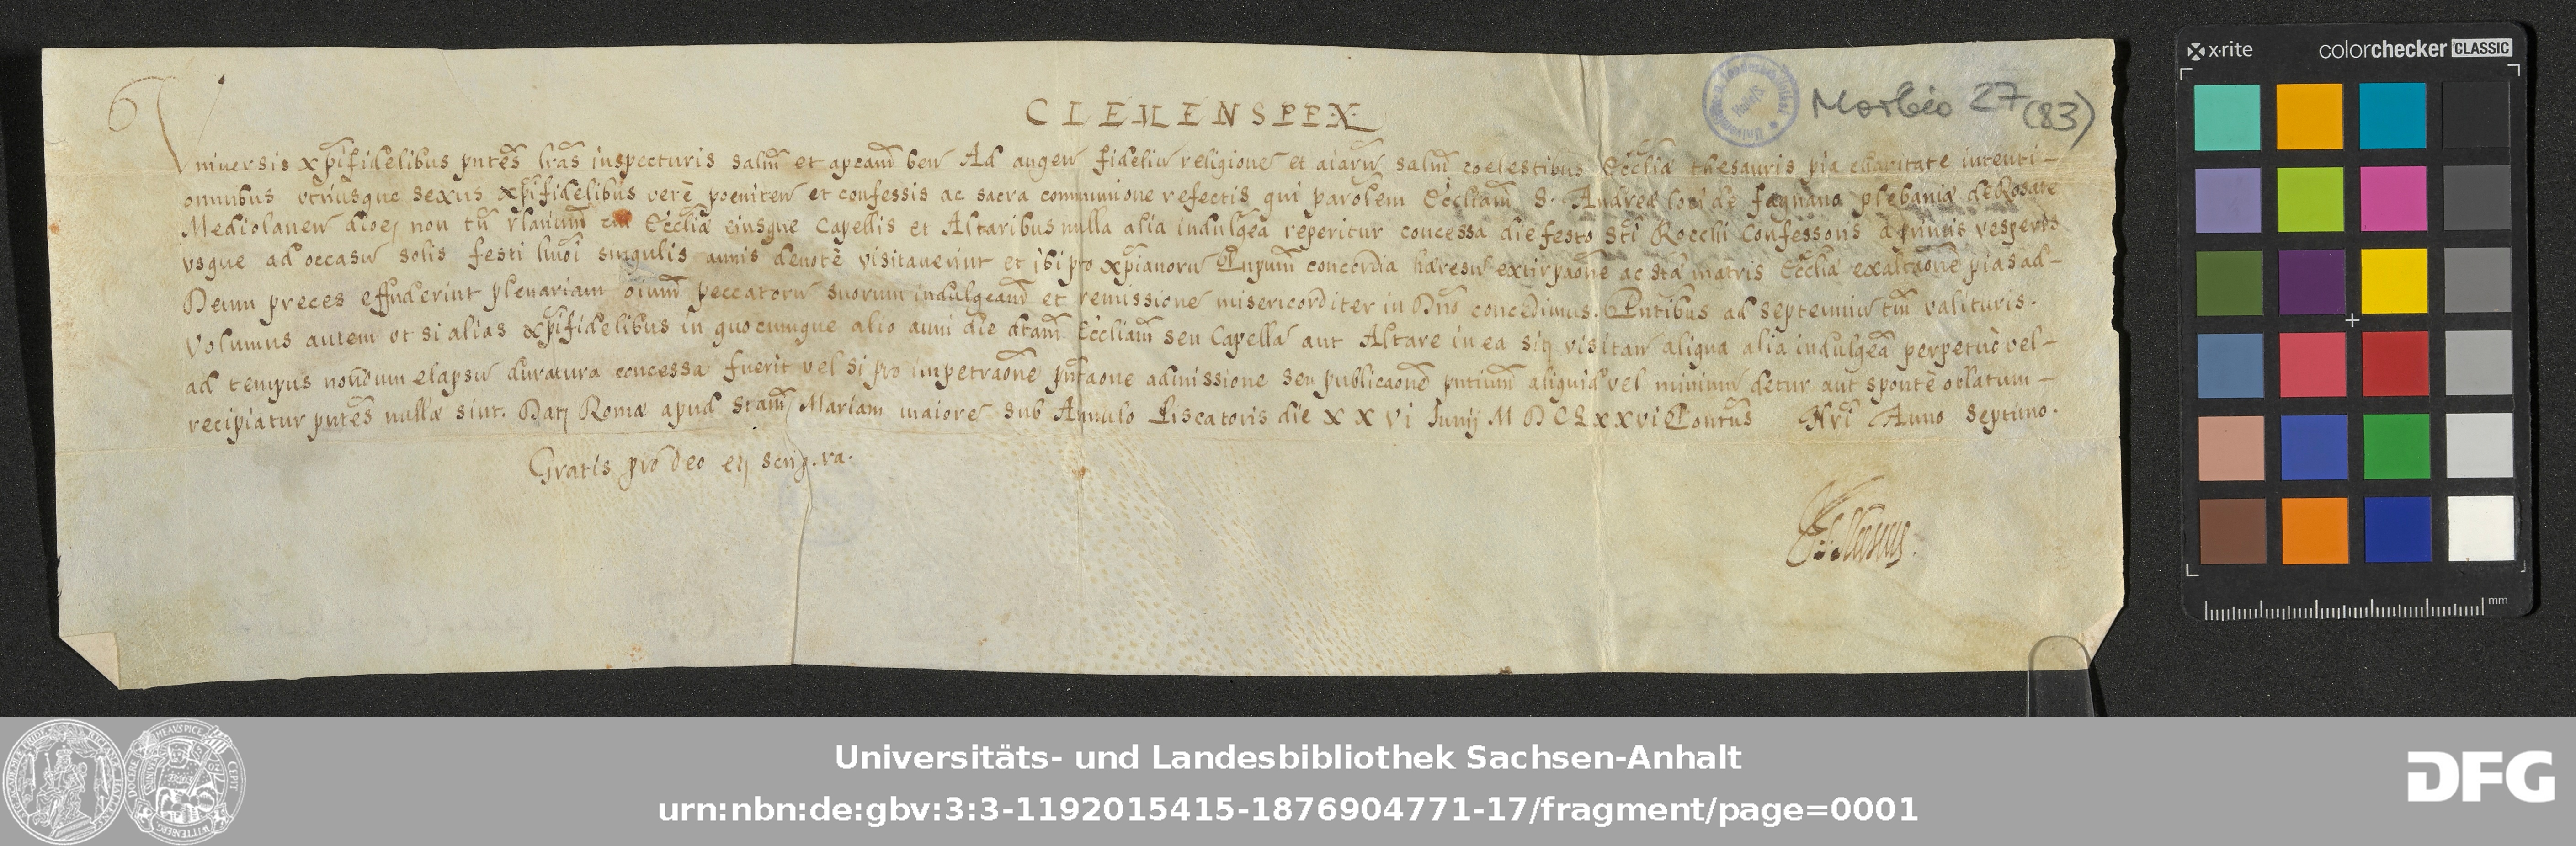 CLEMENS PP. X.
Morbio 27 (83)
Universis xpifidelibus pntes lras inspecturis salm et apcam ben Ad augen fideliu religione et aiaru salm coelestibus Ecclia thesauris pia charitate intenti-
omnibus utriusque sexus xpifidelibus verè poeniten et confessis ac sacra communione refectis qui parolem Eccliam S. Andreæ loci de fagnano plebaniæ de Rosate
Mediolanen dioc, non tn Ecclia eiusque Capellis et Altaribus nulla alia indulgea reperitur concessa die festo sti Rocchi Confessoris a primis vesperis
usque ad occasu solis festi hmoi singulis annis devotè visitaverint et ibi pro xpianoru Pnpum concordia hæresu extirpaone ac sta matris Ecclia exaltaone pias ad-
Deum preces effuderint plenariam oium peccatoru suorum indulgeam et remissione misericorditer in Dno concedimus. Pntibus ad septenniu tm valituris.
Volumus autem ut si alias xpifidelibus in quocumque alio anni die dtam Eccliam seu Capella aut Altare in ea sit visitan aliqua alia indulgea perpetuò vel-
ad tempus nondum elapsu duratura concessa fuerit vel si pro impetraone pntaone admissione seu publicaone pntium aliquid vel minimu detur aut spontè oblatum-
recipiatur pntes nullæ sint. Dat Romæ apud Stam Mariam maiore sub Annulo Piscatoris die XXVI Junij MDCLXXVI Pontus Nri Anno Septimo.
Gratis pro deo et
x·rite colorchecker CLASSIC
mm
Universitäts- und Landesbibliothek Sachsen-Anhalt
urn:nbn:de:gbv:3:3-1192015415-1876904771-17/fragment/page=0001
DFG